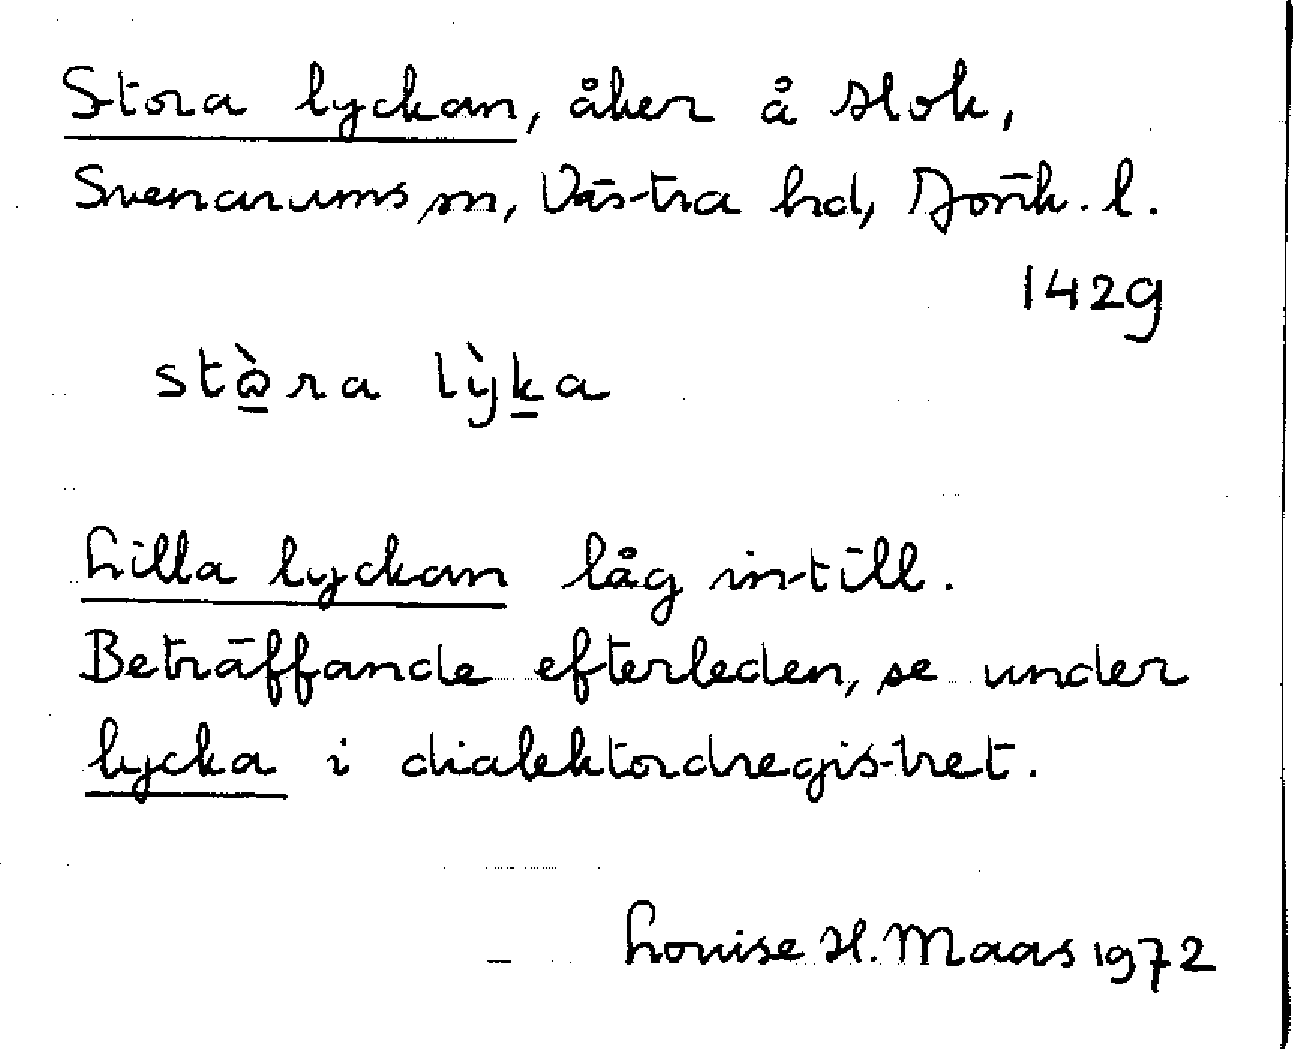 Stora lyckan, åker å Hok,
Svenarums sn, Västra hd, Jönk. l.
1429
lỳka
Lilla lyckan låg intill.
Beträffande efterleden, se under
lycka i dialektordregistret.
Louise H. Maas 1972